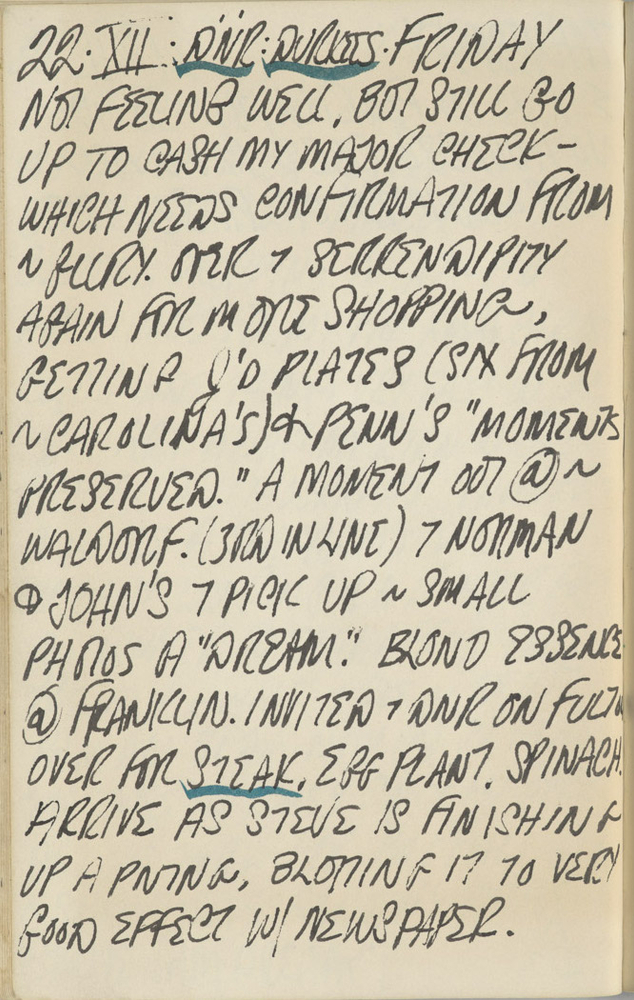 22·XII: D'N'R: DURKEES·FRIDAY
NOT FEELING WELL, BOT STILL GO
UP TO CASH MY MAJOR CHECK–
WHICH NEEDS CONFIRMATION FROM
~ OVER 7 SERRENDIPITY
AGAIN FOR MORE SHOPPING,
GETTING PLATES (SIX FROM
~ CAROLINA'S) & PENN'S "MOMENTS
PRESERVED." A MOMENT OOT @ ~
WALDORF. (3RD IN LINE) 7 NORMAN
JOHN'S 7 PICK UP ~ SMALL
PHOTOS A "DREAM." BLOND ESSENCE
@ FRANKLIN. INVITED 7 DNR ON
OVER FOR STEAK, EGG PLANT, SPINACH.
ARRIVE AS STEVE IS FINISHING
UP A PNTNG, BLOTTING IT TO VERY
GOOD EFFECT W/ NEWSPAPER.